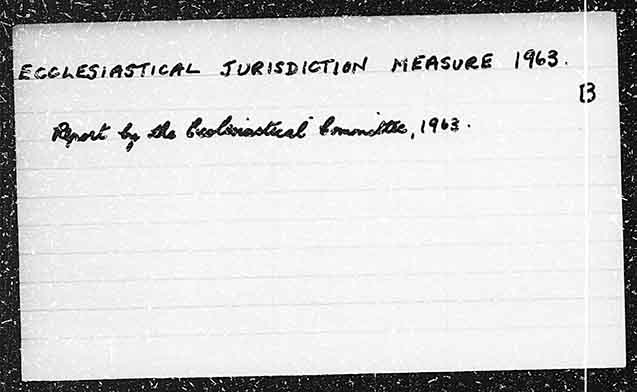 ECCLESIASTICAL JURISDICTION MEASURE 1963.
13
Report by the Ecclesiastical Committee, 1963.